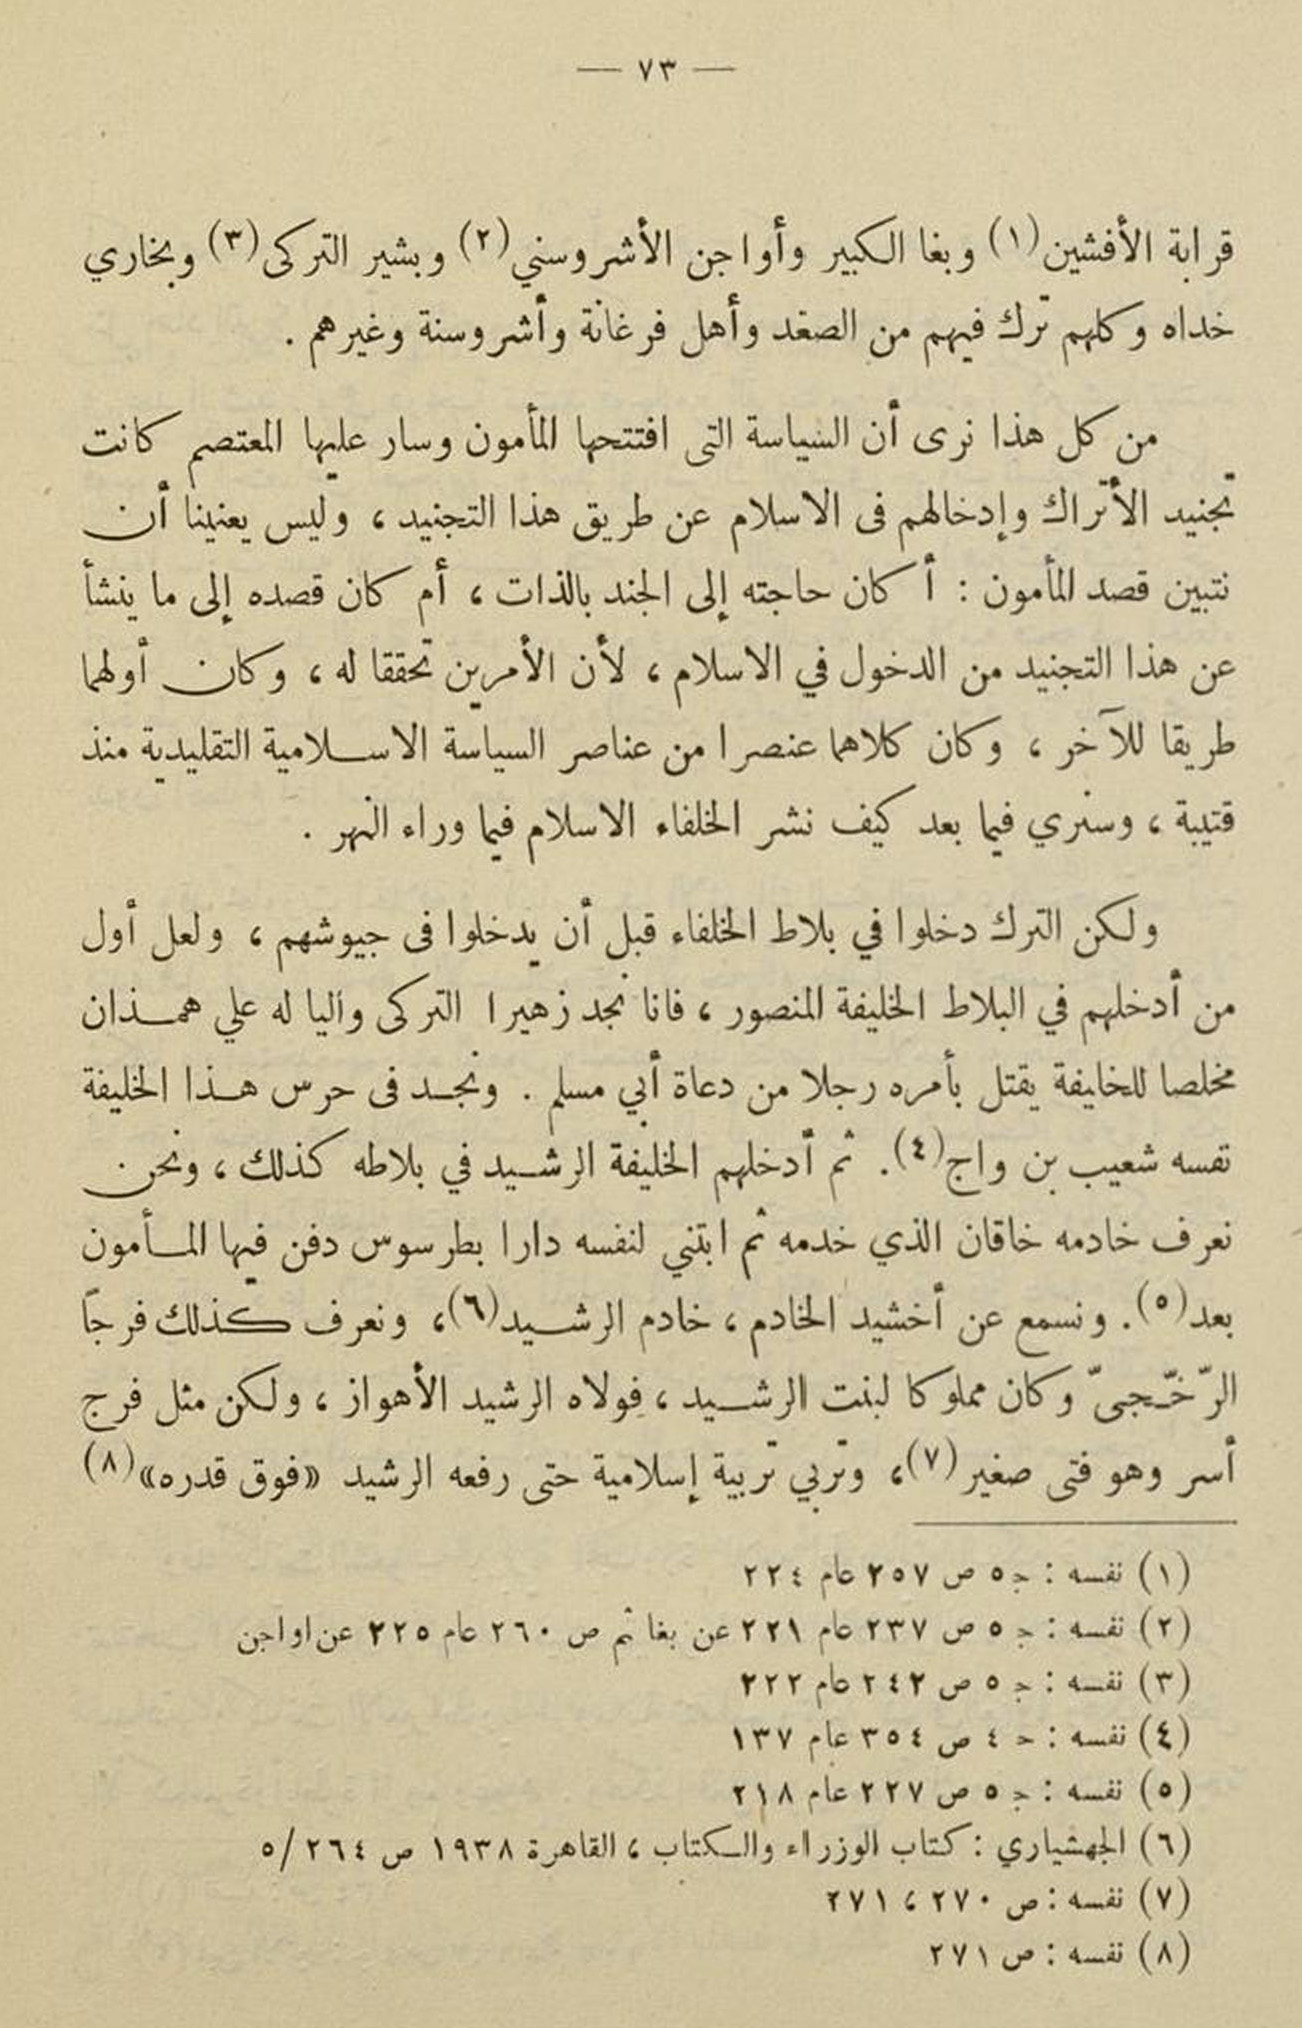 — ٧٣ —
قرابة الأفشين(١) وبغا الكبير وأواجن الأشروسني(٢) وبشير التركى(٣) وبخاري
خداه وكلهم ترك فيهم من الصغد وأهل فرغانة وأشروسنة وغيرهم .
من كل هذا نرى أن السياسة التى افتتحها المأمون وسار عليها المعتصم كانت
تجنيد الأتراك وإدخالهم فى الاسلام عن طريق هذا التجنيد ، وليس يعنينا أن
نتبين قصد المأمون : أكان حاجته إلى الجند بالذات ، أم كان قصده إلى ما ينشأ
عن هذا التجنيد من الدخول في الاسلام ، لأن الأمرين تحققا له ، وكان أولهما
طريقا للآخر ، وكان كلاهما عنصرا من عناصر السياسة الاسلامية التقليدية منذ
قتيبة ، وسنري فيما بعد كيف نشر الخلفاء الاسلام فيما وراء النهر .
ولكن الترك دخلوا في بلاط الخلفاء قبل أن يدخلوا فى جيوشهم ، ولعل أول
من أدخلهم في البلاط الخليفة المنصور ، فانا نجد زهيرا التركى واليا له علي همذان
مخلصا للخليفة يقتل بأمره رجلا من دعاة أبي مسلم . ونجد فى حرس هذا الخليفة
نفسه شعيب بن واج(٤). ثم أدخلهم الخليفة الرشيد في بلاطه كذلك ، ونحن
نعرف خادمه خاقان الذي خدمه ثم ابتني لنفسه دارا بطرسوس دفن فيها المأمون
بعد(٥). ونسمع عن أخشيد الخادم ، خادم الرشيد(٦)، ونعرف كذلك فرجًا
الرّخّجىّ وكان مملوكا لبنت الرشيد ، فولاه الرشيد الأهواز ، ولكن مثل فرج
أسر وهو فتى صغير(٧)، وتربي تربية إسلامية حتى رفعه الرشيد «فوق قدره»(٨)
(١) نفسه : ج ٥ ص ٢٥٧ عام ٢٢٤
(٢) نفسه : ج ٥ ص ٢٣٧ عام ٢٢١ عن بغا ثم ص ٢٦٠ عام ٢٢٥ عن اواجن
(٣) نفسه : ج ٥ ص ٢٤٢ عام ٢٢٢
(٤) نفسه : ح ٤ ص ٣٥٤ عام ١٣٧
(٥) نفسه : ج ٥ ص ٢٢٧ عام ٢١٨
(٦) الجهشياري : كتاب الوزراء والكتاب ، القاهرة ١٩٣٨ ص ٢٦٤ /٥
(٧) نفسه : ص ٢٧٠ ، ٢٧١
(٨) نفسه : ص ٢٧١